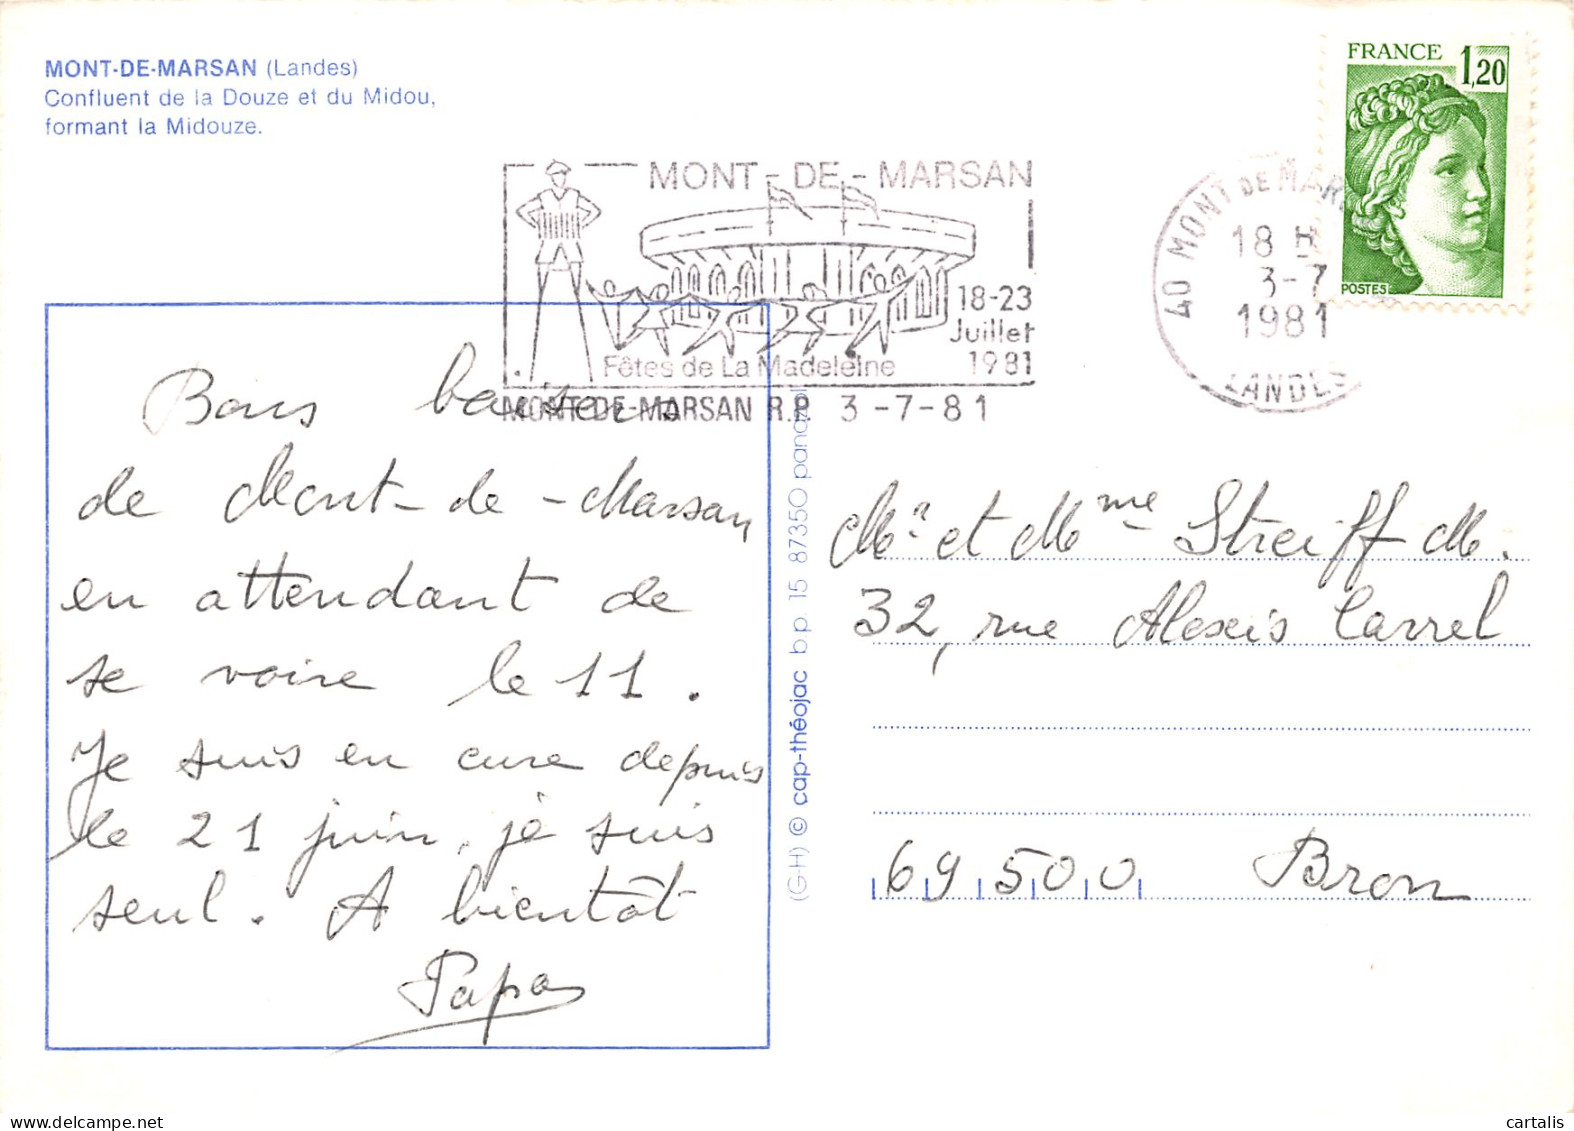 MONT-DE-MARSAN (Landes)
Confluent de la Douze et du Midou,
formant la Midouze.
FRANCE 1,20
POSTES
MONT-DE-MARSAN
18-23
Juillet
1981
Fêtes de La Madeleine
MONT-DE-MARSAN R.P. 3-7-81
40 MONT DE MAR
18 H
3-7
1981
LANDES
Bons baisers
de Mont-de-Marsan
en attendant de
se voire le 11.
Je suis en cure depuis
le 21 juin, je suis
seul. A bientôt
Papa
(G-H) © cap-théojac b.p. 15 87350 panazol
Mr et Mme Streiff M.
32, rue Alexis Carrel
69500 Bron
delcampe.net
cartalis